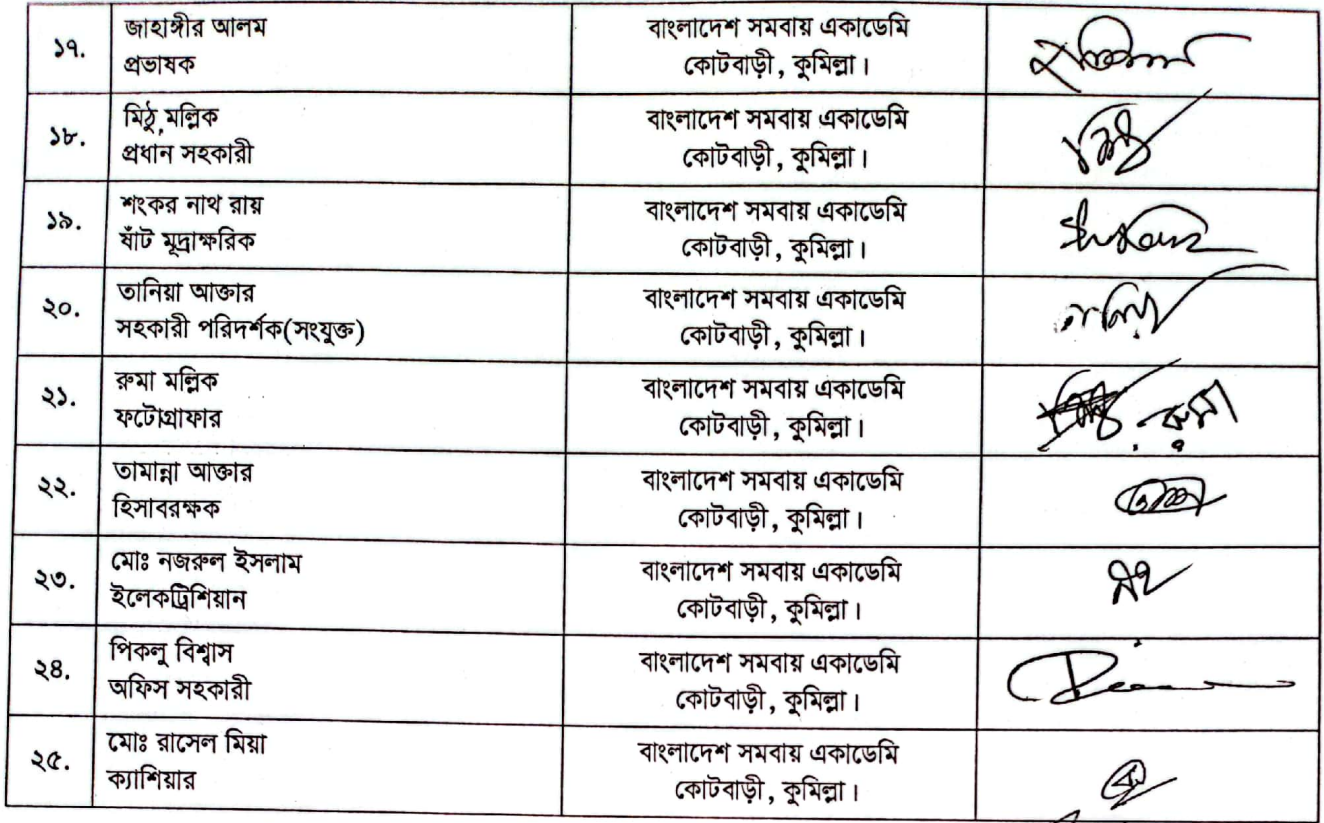 ১৭.
জাহাঙ্গীর আলম
প্রভাষক
বাংলাদেশ সমবায় একাডেমি
কোটবাড়ী, কুমিল্লা।
১৮.
মিঠু মল্লিক
প্রধান সহকারী
বাংলাদেশ সমবায় একাডেমি
কোটবাড়ী, কুমিল্লা।
১৯.
শংকর নাথ রায়
ষাঁট মূদ্রাক্ষরিক
বাংলাদেশ সমবায় একাডেমি
কোটবাড়ী, কুমিল্লা।
২০.
তানিয়া আক্তার
সহকারী পরিদর্শক(সংযুক্ত)
বাংলাদেশ সমবায় একাডেমি
কোটবাড়ী, কুমিল্লা।
২১.
রুমা মল্লিক
ফটোগ্রাফার
বাংলাদেশ সমবায় একাডেমি
কোটবাড়ী, কুমিল্লা।
রুমা
২২.
তামান্না আক্তার
হিসাবরক্ষক
বাংলাদেশ সমবায় একাডেমি
কোটবাড়ী, কুমিল্লা।
২৩.
মোঃ নজরুল ইসলাম
ইলেকট্রিশিয়ান
বাংলাদেশ সমবায় একাডেমি
কোটবাড়ী, কুমিল্লা।
২৪.
পিকলু বিশ্বাস
অফিস সহকারী
বাংলাদেশ সমবায় একাডেমি
কোটবাড়ী, কুমিল্লা।
২৫.
মোঃ রাসেল মিয়া
ক্যাশিয়ার
বাংলাদেশ সমবায় একাডেমি
কোটবাড়ী, কুমিল্লা।